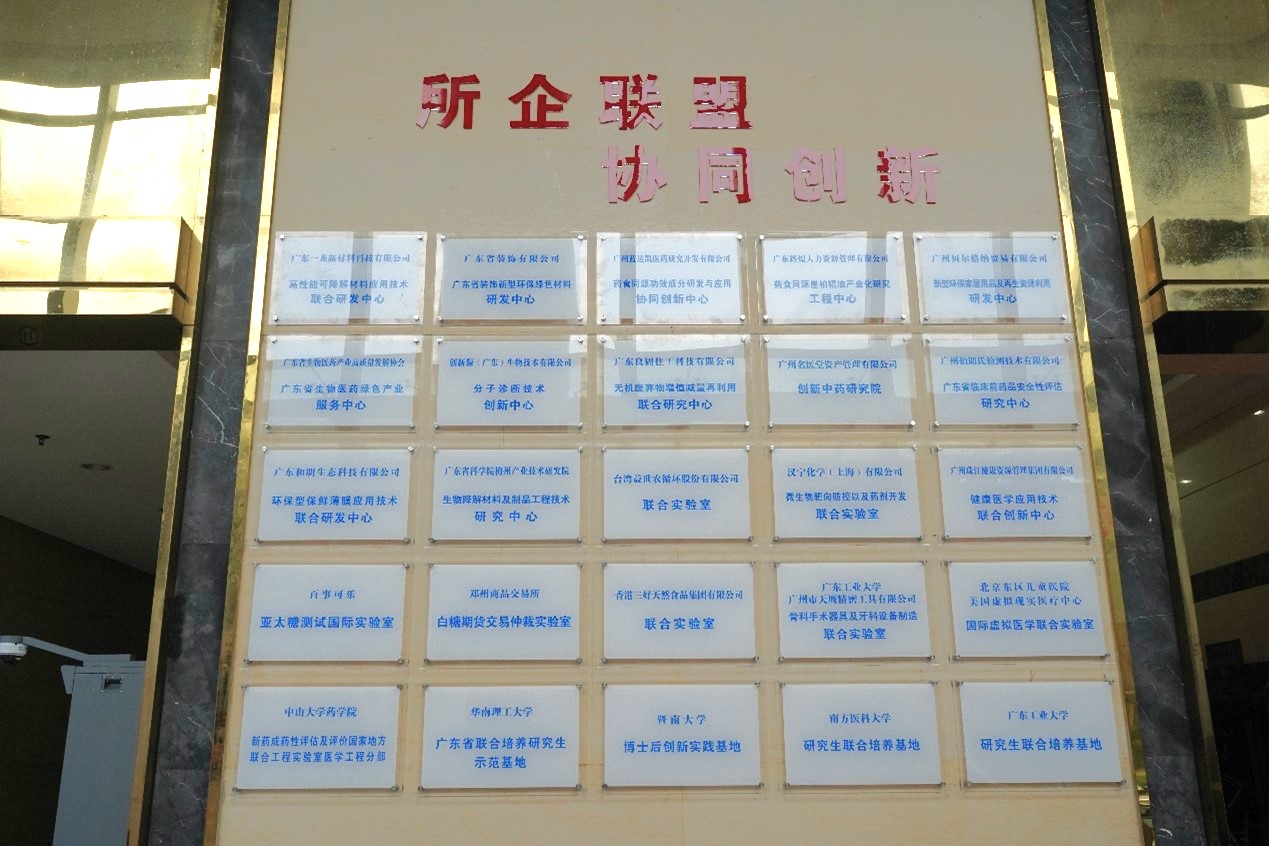 所企联盟
协同创新
广东一龙新材料科技有限公司
高性能可降解材料应用技术
联合研发中心
广东省装饰有限公司
广东省装饰新型环保绿色材料
研发中心
医药研究开发有限公司
药食同源功效成分研发与应用
协同创新中心
人力资源管理有限公司
药食同源崖柏精油产业化研究
工程中心
广州贝尔格纳贸易有限公司
新型环保家居用品及再生资源利用
研发中心
广东省生物医药产业高质量发展协会
广东省生物医药绿色产业
服务中心
创新源(广东)生物技术有限公司
分子诊断技术
创新中心
广东良固佳工科技有限公司
无机废弃物增值减量再利用
联合研究中心
广州名医堂资产管理有限公司
创新中药研究院
广州伯朗氏检测技术有限公司
广东省临床前药品安全性评估
研究中心
广东和明生态科技有限公司
环保型保鲜薄膜应用技术
联合研发中心
广东省科学院梅州产业技术研究院
生物降解材料及制品工程技术
研究中心
台湾益世农循环股份有限公司
联合实验室
汉宁化学(上海)有限公司
微生物靶向防控以及药剂开发
联合实验室
广州珠江健康资源管理集团有限公司
健康医学应用技术
联合创新中心
百事可乐
亚太糖测试国际实验室
郑州商品交易所
白糖期货交易仲裁实验室
香港三好天然食品集团有限公司
联合实验室
广东工业大学
广州市天城精密工具有限公司
骨科手术器具及牙科设备制造
联合实验室
北京东区儿童医院
美国虚拟现实医疗中心
国际虚拟医学联合实验室
中山大学药学院
新药成药性评估及评价国家地方
联合工程实验室医学工程分部
华南理工大学
广东省联合培养研究生
示范基地
暨南大学
博士后创新实践基地
南方医科大学
研究生联合培养基地
广东工业大学
研究生联合培养基地